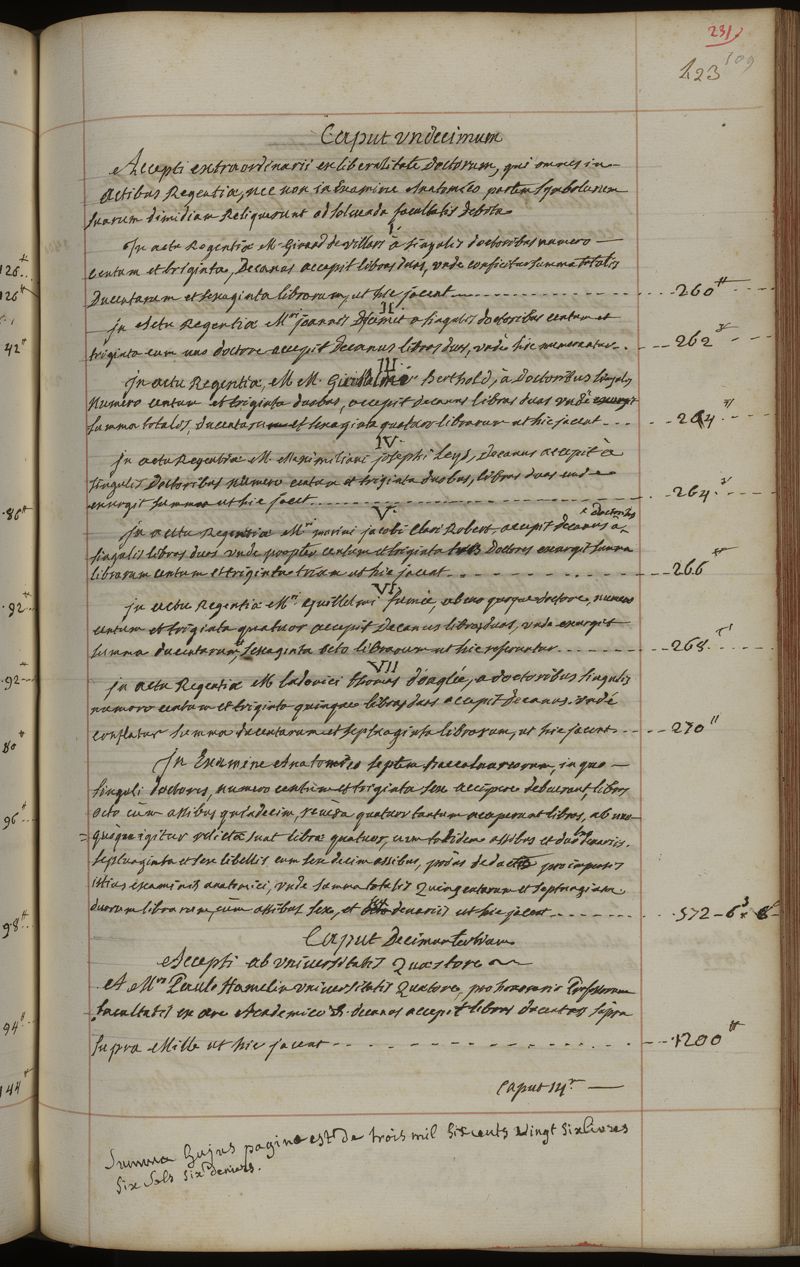 231
109
123
Caput undecimum
Accepti extraordinarii ex liberalitate Doctorum, qui omnes in
Actibus Regentiæ, nec non in Examine Anatomico partem symbolorum
suarum dimidiam Reliquerunt ad solvenda facultatis debita
I.
In actu Regentiæ M. Girard de villars à singulis doctoribus numero —
centum et triginta, Decanus accepit libras duas, unde conficitur summa totalis
Ducentarum et sexaginta librarum, ut hic jacent 260
II
in Actu Regentiæ Mri joannis Hamet a singulis doctoribus centum et
triginta cum uno doctore accepit Decanus libras duas, unde hic numerantur 262
III
in actu Regentiæ, M. M. Guillelmi Berthold, à Doctoribus singulis
Numero centum et triginta duobus, accepit decanus libras duas unde exurgit
summa totalis, ducentarum et sexaginta quatuor librarum ut hic jacent 264
IV.
in actu Regentiæ M. Maximiliani josephi Leys, Decanus accepit à
singulis Doctoribus numero centum et triginta duobus, libras duas unde
exurgit summa ut hic jacet 264
V.
in actu Regentiæ Mri marini jacobi Clari Robert, accepit decanus a
doctoribus
singulis libras duas unde propter centum et triginta tres Doctores exurgit summa
librarum centum et triginta trium ut hic jacent 266
VI
in actu Regentiæ Mri Guillelmi fumée, ab uno quoque doctore, numero
centum et triginta quatuor accepit Decanus libras duas, unde exurgit
summa ducentarum, sexaginta octo librarum ut hic reponuntur 268
VII
in actu Regentiæ M. ludovici thomas d'aglée, a doctoribus singulis
numero centum et triginta quinque libras duas accepit decanus. unde
conflatur summa ducentarum et septuaginta librarum, ut hic jacent 270
In Examine Anatomico septem Baccalaureorum, in quo —
singuli doctores, numero centum et triginta sex accipere debuerunt, libras
octo cum assibus quindecim, revera quatuor tantum acceperunt libras, ab uno
quoque igitur relictæ sunt libræ quatuor, cum totidem assibus et duobus denariis.
septuaginta et sex libellis cum sex decim assibus, prius deductis pro impensis
istius examinis anatomici, unde summa totalis Quingentarum et septuaginta
duarum librarum, cum assibus sex, et denariis ut hic jacent 572 - 6
Caput Decimum tertium
Accepti ab universitatis Quæstore
A Mro Paulo Hamelin universitatis Quæstore, pro honorario Professorum
facultatis ex ære Academico decanus accepit libras ducentas supra
supra Mille ut hic jacent 1200
Caput 14m
Summa hujus pagine est de trois mil six cents Vingt six livres
Six sols six deniers.
126
126
42
86
92
92
80
96
98
94
144